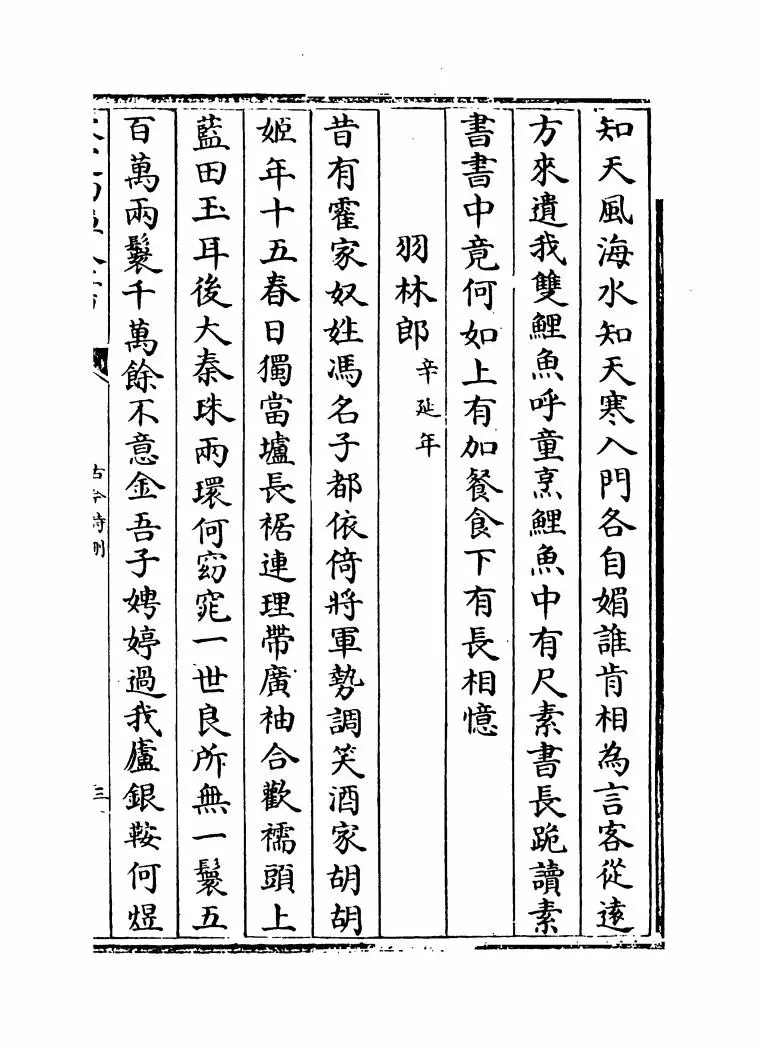 知天風海水知天寒入門各自媚誰肯相為言客從逺
方來遺我雙鯉魚呼童烹鯉魚中有尺素書長跪讀素
書書中竟何如上有加餐食下有長相憶
羽林郎 辛延年
昔有霍家奴姓馮名子都依倚將軍勢調笑酒家胡胡
姬年十五春日獨當壚長裾連理帶廣袖合歡襦頭上
藍田玉耳後大秦珠兩環何窈窕一世良所無一鬟五
百萬兩鬟千萬餘不意金吾子娉婷過我廬銀鞍何煜
古今詩刪
三